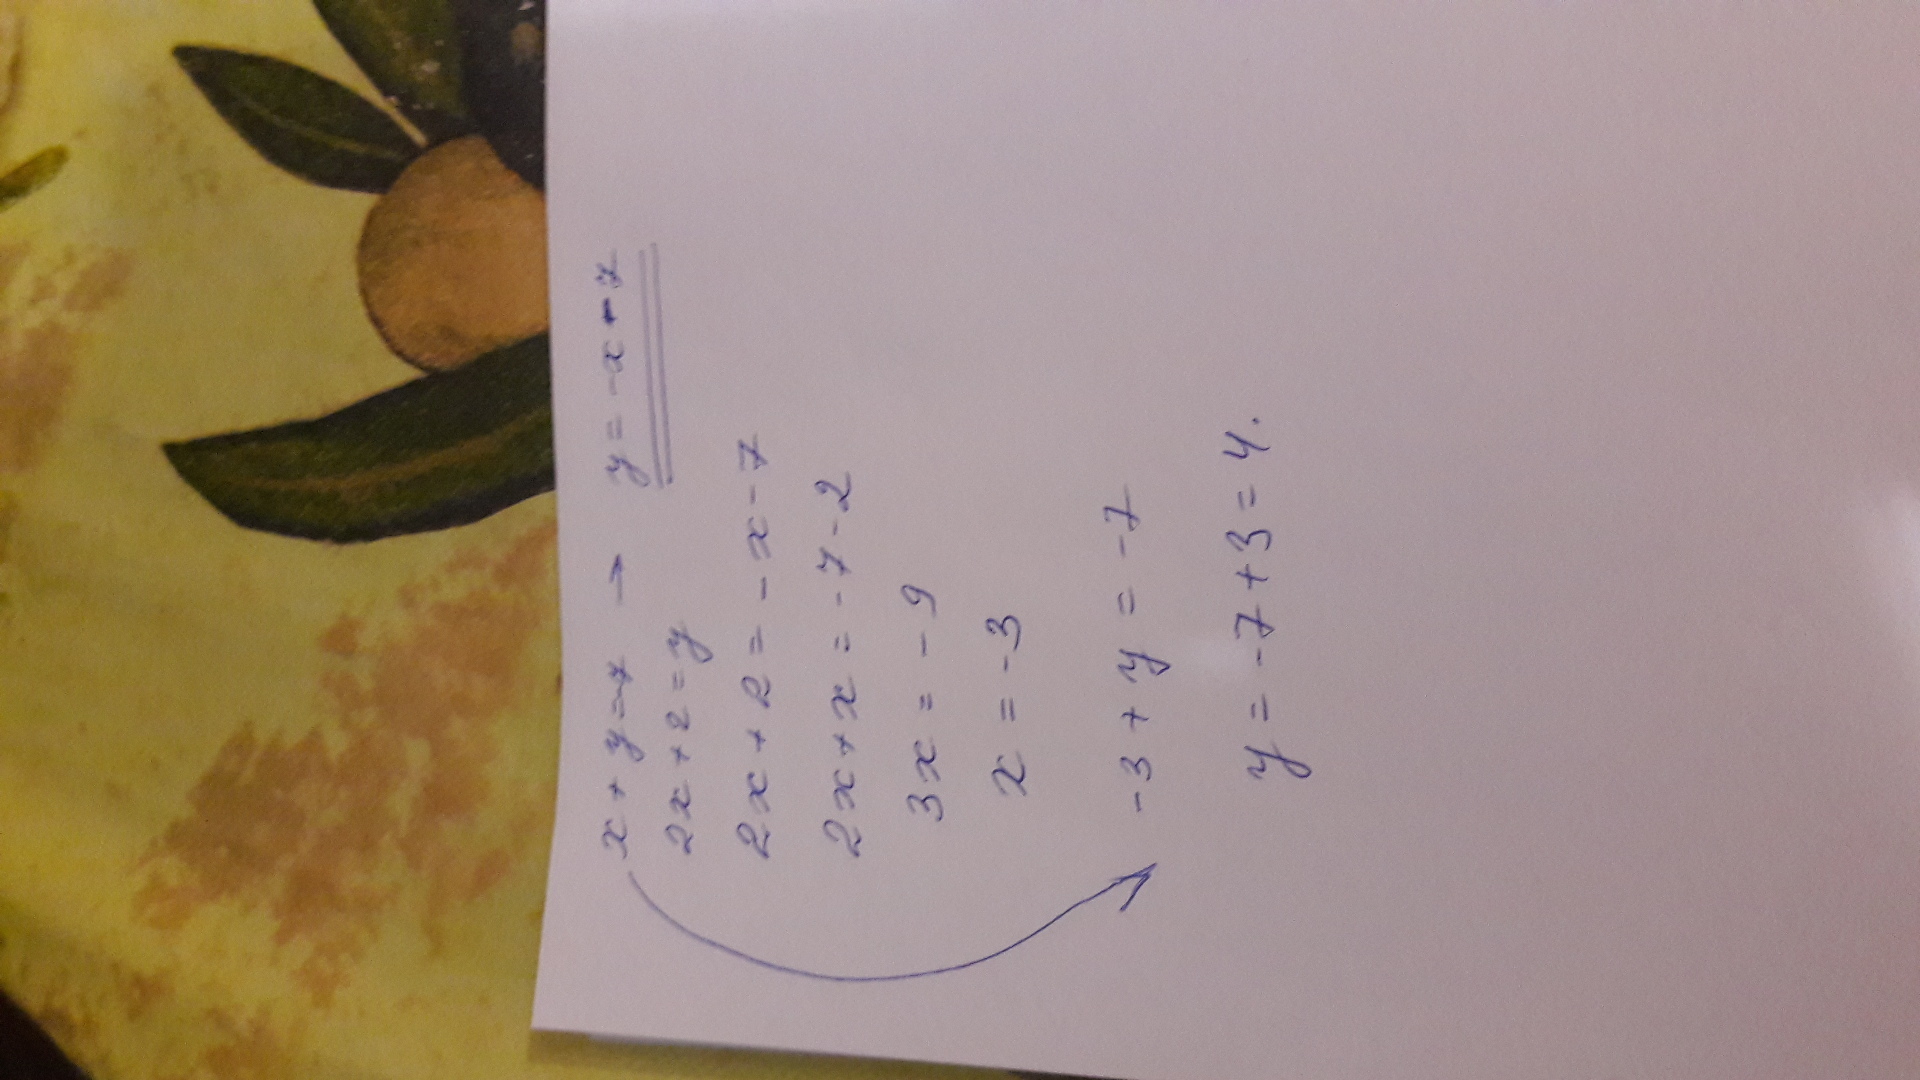 x + y = -7 → y = -x - 7
2x + 2 = y
2x + 2 = -x - 7
2x + x = -7 - 2
3x = -9
x = -3
-3 + y = -7
y = -7 + 3 = 4.